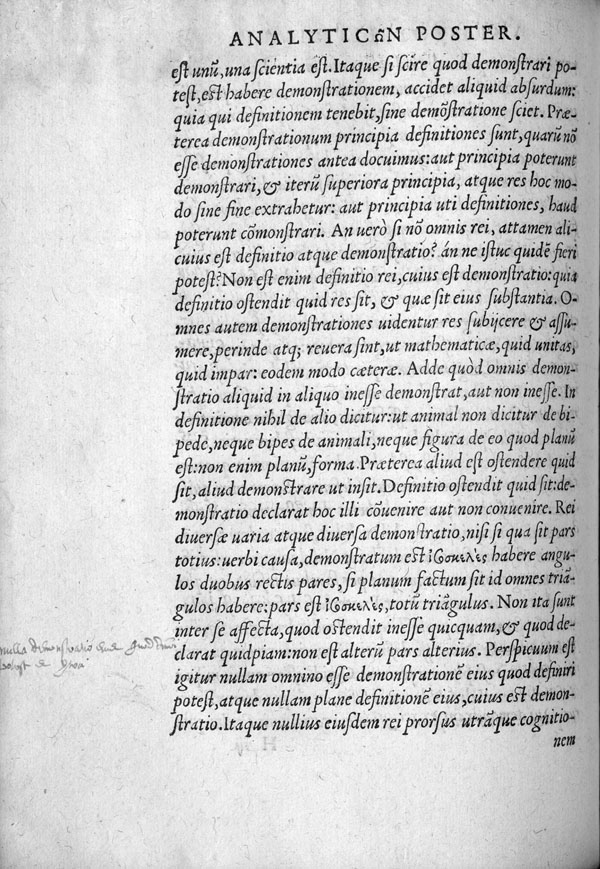 ANALYTICῶN POSTER.
est unũ, una scientia est. Itaque si scire quod demonstrari po-
test, est habere demonstrationem, accidet aliquid absurdum:
quia qui definitionem tenebit, sine demõstratione sciet. Præ-
terea demonstrationum principia definitiones sunt, quarũ nõ
esse demonstrationes antea docuimus: aut principia poterunt
demonstrari, & iterũ superiora principia, atque res hoc mo-
do sine fine extrahetur: aut principia uti definitiones, haud
poterunt cõmonstrari. An uerò si nõ omnis rei, attamen ali-
cuius est definitio atque demonstratio? án ne istuc quidẽ fieri
potest? Non est enim definitio rei, cuius est demonstratio: quia
definitio ostendit quid res sit, & quæ sit eius substantia. O-
mnes autem demonstrationes uidentur res subijcere & assu-
mere, perinde atq; reuera sint, ut mathematicæ, quid unitas,
quid impar: eodem modo cæteræ. Adde quòd omnis demon-
stratio aliquid in aliquo inesse demonstrat, aut non inesse. In
definitione nihil de alio dicitur: ut animal non dicitur de bi-
pede, neque bipes de animali, neque figura de eo quod planũ
est: non enim planũ, forma. Præterea aliud est ostendere quid
sit, aliud demonstrare ut insit. Definitio ostendit quid sit: de-
monstratio declarat hoc illi cõuenire aut non conuenire. Rei
diuersæ uaria atque diuersa demonstratio, nisi si qua sit pars
totius: uerbi causa, demonstratum est ἰσοσκελὲς habere angu-
los duobus rectis pares, si planum factum sit id omnes triã-
gulos habere: pars est ἰσοσκελὲς, totũ triãgulus. Non ita sunt
inter se affecta, quod ostendit inesse quicquam, & quod de-
clarat quidpiam: non est alterũ pars alterius. Perspicuum est
igitur nullam omnino esse demonstrationẽ eius quod definiri
potest, atque nullam plane definitionẽ eius, cuius est demon-
stratio. Itaque nullius eiusdem rei prorsus utrãque cognitio-
nem
nulla demonstratio